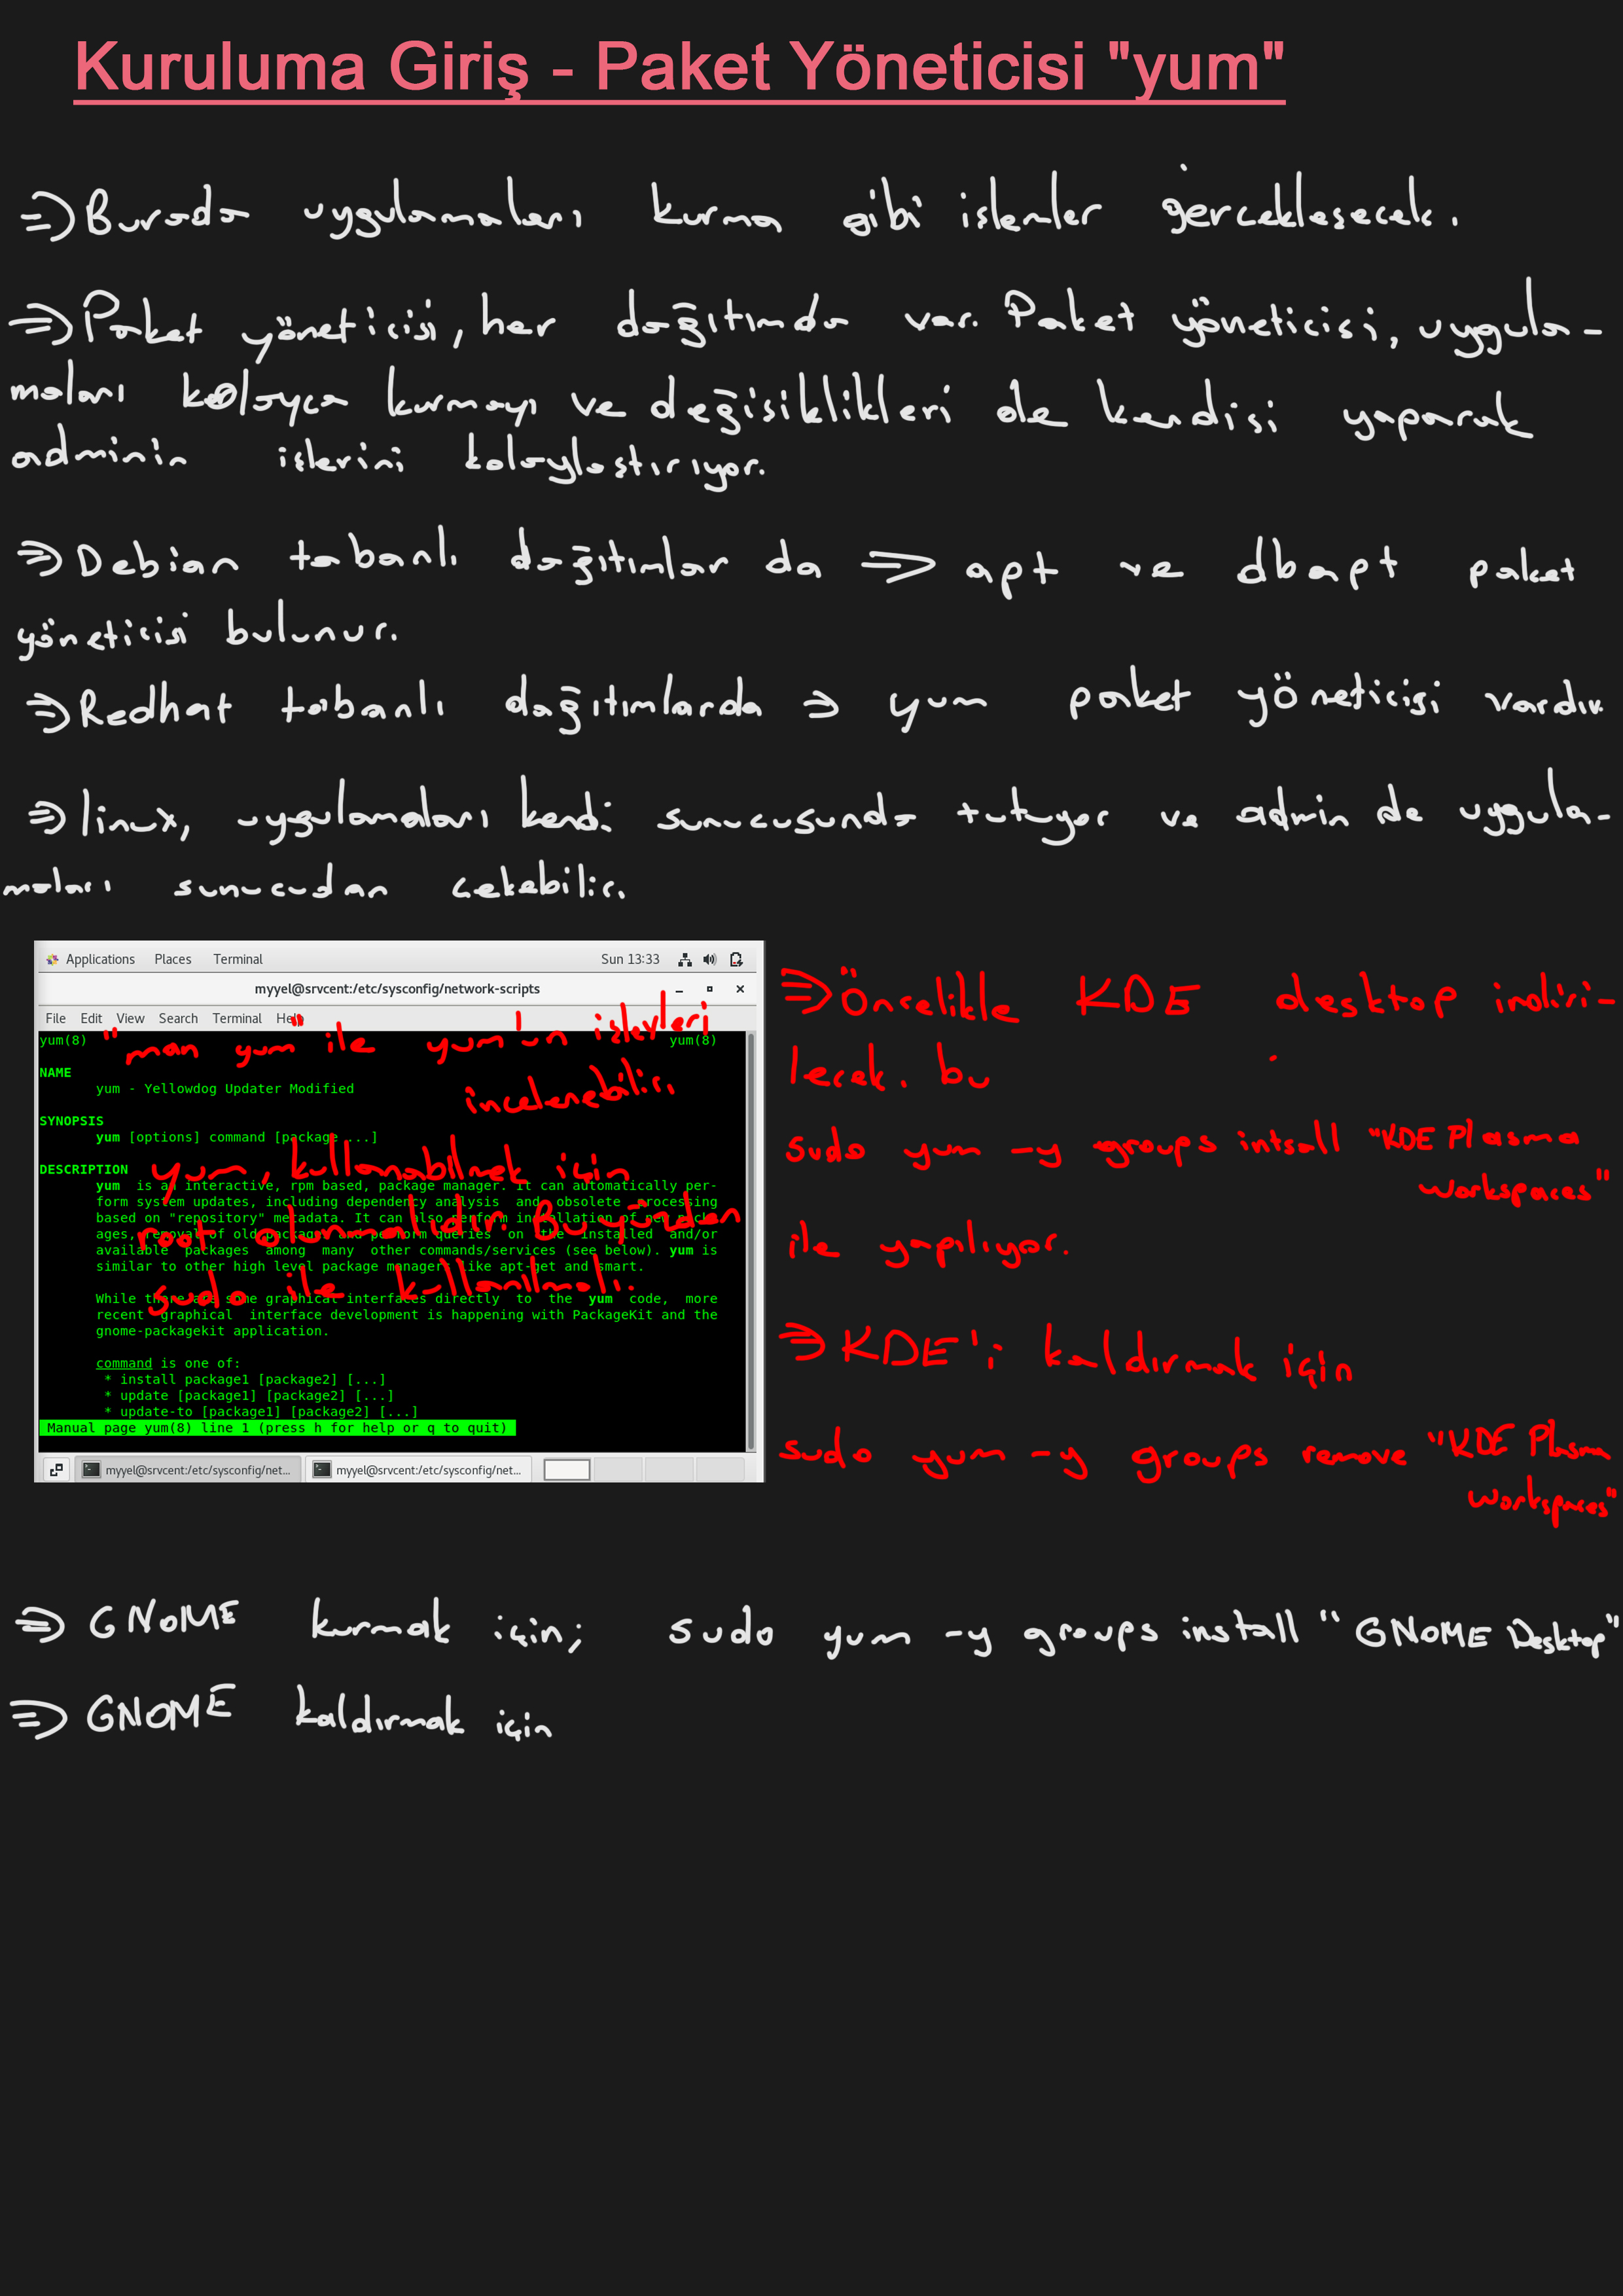 Kuruluma Giriş - Paket Yöneticisi "yum"
⇒ Burada uygulamaları kurma gibi islemler gerceklesecek.
⇒ Paket yöneticisi, her dağıtımda var. Paket yöneticisi, uygula-
maları kolayca kurmayı ve değisiklikleri de kendisi yaparak
adminin işlerini kolaylastırıyor.
⇒ Debian tabanlı dağıtımlar da ⇒ apt ve dbapt paket
yöneticisi bulunur.
⇒ Redhat tabanlı dağıtımlarda ⇒ yum paket yöneticisi vardır.
⇒ linux, uygulamaları kendi sunucusunda tutuyor ve admin de uygula-
maları sunucudan cekebilir.
Applications Places Terminal Sun 13:33
myyel@srvcent:/etc/sysconfig/network-scripts
File Edit View Search Terminal Help
yum(8) yum(8)
"man yum" ile yum'un işlevleri
incelenebilir.
NAME
yum - Yellowdog Updater Modified
SYNOPSIS
yum [options] command [package ...]
DESCRIPTION
yum, kullanabilmek için
root olunmalıdır. Bu yüzden
sudo ile kullanılmalı.
yum is an interactive, rpm based, package manager. It can automatically per-
form system updates, including dependency analysis and obsolete processing
based on "repository" metadata. It can also perform installation of new pack-
ages, removal of old packages and perform queries on the installed and/or
available packages among many other commands/services (see below). yum is
similar to other high level package managers like apt-get and smart.
While there are some graphical interfaces directly to the yum code, more
recent graphical interface development is happening with PackageKit and the
gnome-packagekit application.
command is one of:
* install package1 [package2] [...]
* update [package1] [package2] [...]
* update-to [package1] [package2] [...]
Manual page yum(8) line 1 (press h for help or q to quit)
myyel@srvcent:/etc/sysconfig/net... myyel@srvcent:/etc/sysconfig/net...
⇒ Öncelikle KDE desktop indiri-
lecek. bu
sudo yum -y groups intsall "KDE Plasma
workspaces"
ile yapılıyor.
⇒ KDE'i kaldırmak için
sudo yum -y groups remove "KDE Plasma
workspaces"
⇒ GNOME kurmak için; sudo yum -y groups install "GNOME Desktop"
⇒ GNOME kaldırmak için